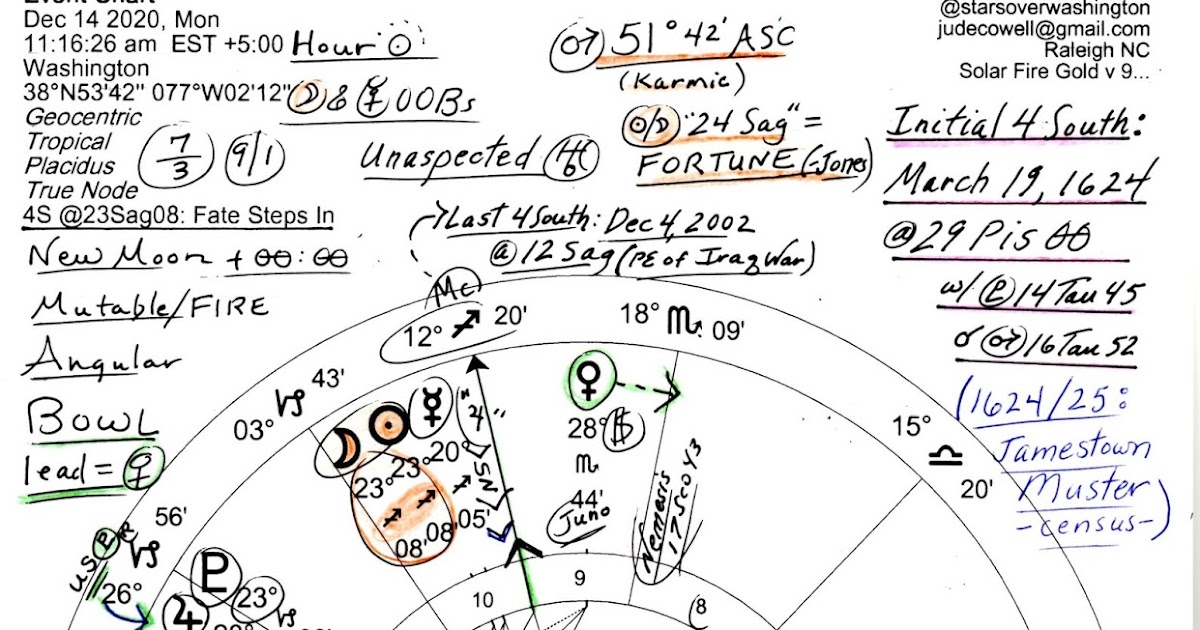 Event Chart
Dec 14 2020, Mon
11:16:26 am EST +5:00
Washington
38°N53'42" 077°W02'12"
Geocentric
Tropical
Placidus
True Node
4S @23Sag08: Fate Steps In
New Moon + 00:00
Mutable/FIRE
Angular
BOWL
lead = ♀
Hour ☉
☽ & ☿ OOBs
7/3
9/1
Unaspected
♂ 51° 42' ASC
(Karmic)
☉/☽ "24 Sag" =
FORTUNE (-Jones)
Last 4 South: Dec 4, 2002
@ 12 Sag (PE of Iraq War)
@starsoverwashington
judecowell@gmail.com
Raleigh NC
Solar Fire Gold v 9...
Initial 4 South:
March 19, 1624
@29 Pis 00
w/ ♇ 14 Tau 45
☌ ♂ 16 Tau 52
(1624/25:
Jamestown
Muster
-census-)
Mc
12° ♐ 20'
18° ♏ 09'
15° ♎ 20'
03° ♑ 43'
56'
♑
26°
US ♇ R
☽ ☉ ☿
23° 23° 20°
♐ ♐ ♐
08' 08' 05'
"♃"
SN
♀
28° $
♏
44'
Juno
Nemesis
17 Sco 43
♇ 23° ♑
♃
10
9
8